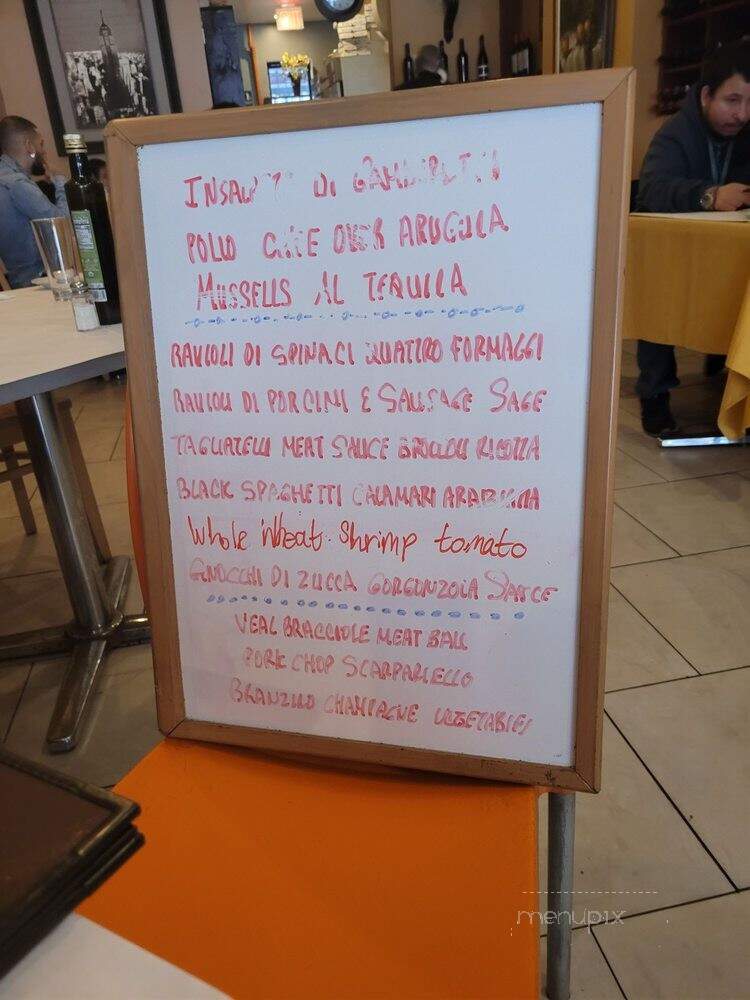 DI
POLLO OVER ARUGULA
MUSSELLS AL TEQUILA
RAVIOLI DI SPINACI QUATTRO FORMAGGI
RAVIOLI DI PORCINI E SAUSAGE SAGE
TAGLIATELLI MEAT SAUCE RICOTTA
BLACK SPAGHETTI CALAMARI
Whole Wheat. Shrimp tomato
GNOCCHI DI ZUCCA GORGONZOLA SAUCE
VEAL BRACCIOLE MEAT BALL
PORK CHOP SCARPARIELLO
BRANZINO CHAMPAGNE VEGETABLES
menupix